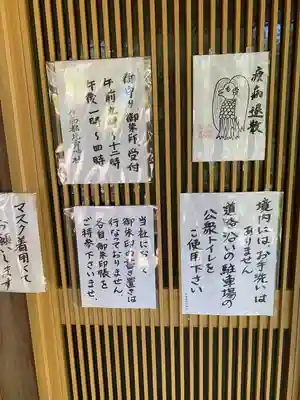 疫病退散
御守り御朱印受付
午前九時〜十二時
午後一時〜四時
境内には、お手洗いは
ありません。
道路沿いの駐車場の
公衆トイレを
ご使用下さい
当社において
御朱印の書き置きは
行なっておりません。
各自御朱印帳を
ご持参下さいませ。
マスク着用にて
お願いします